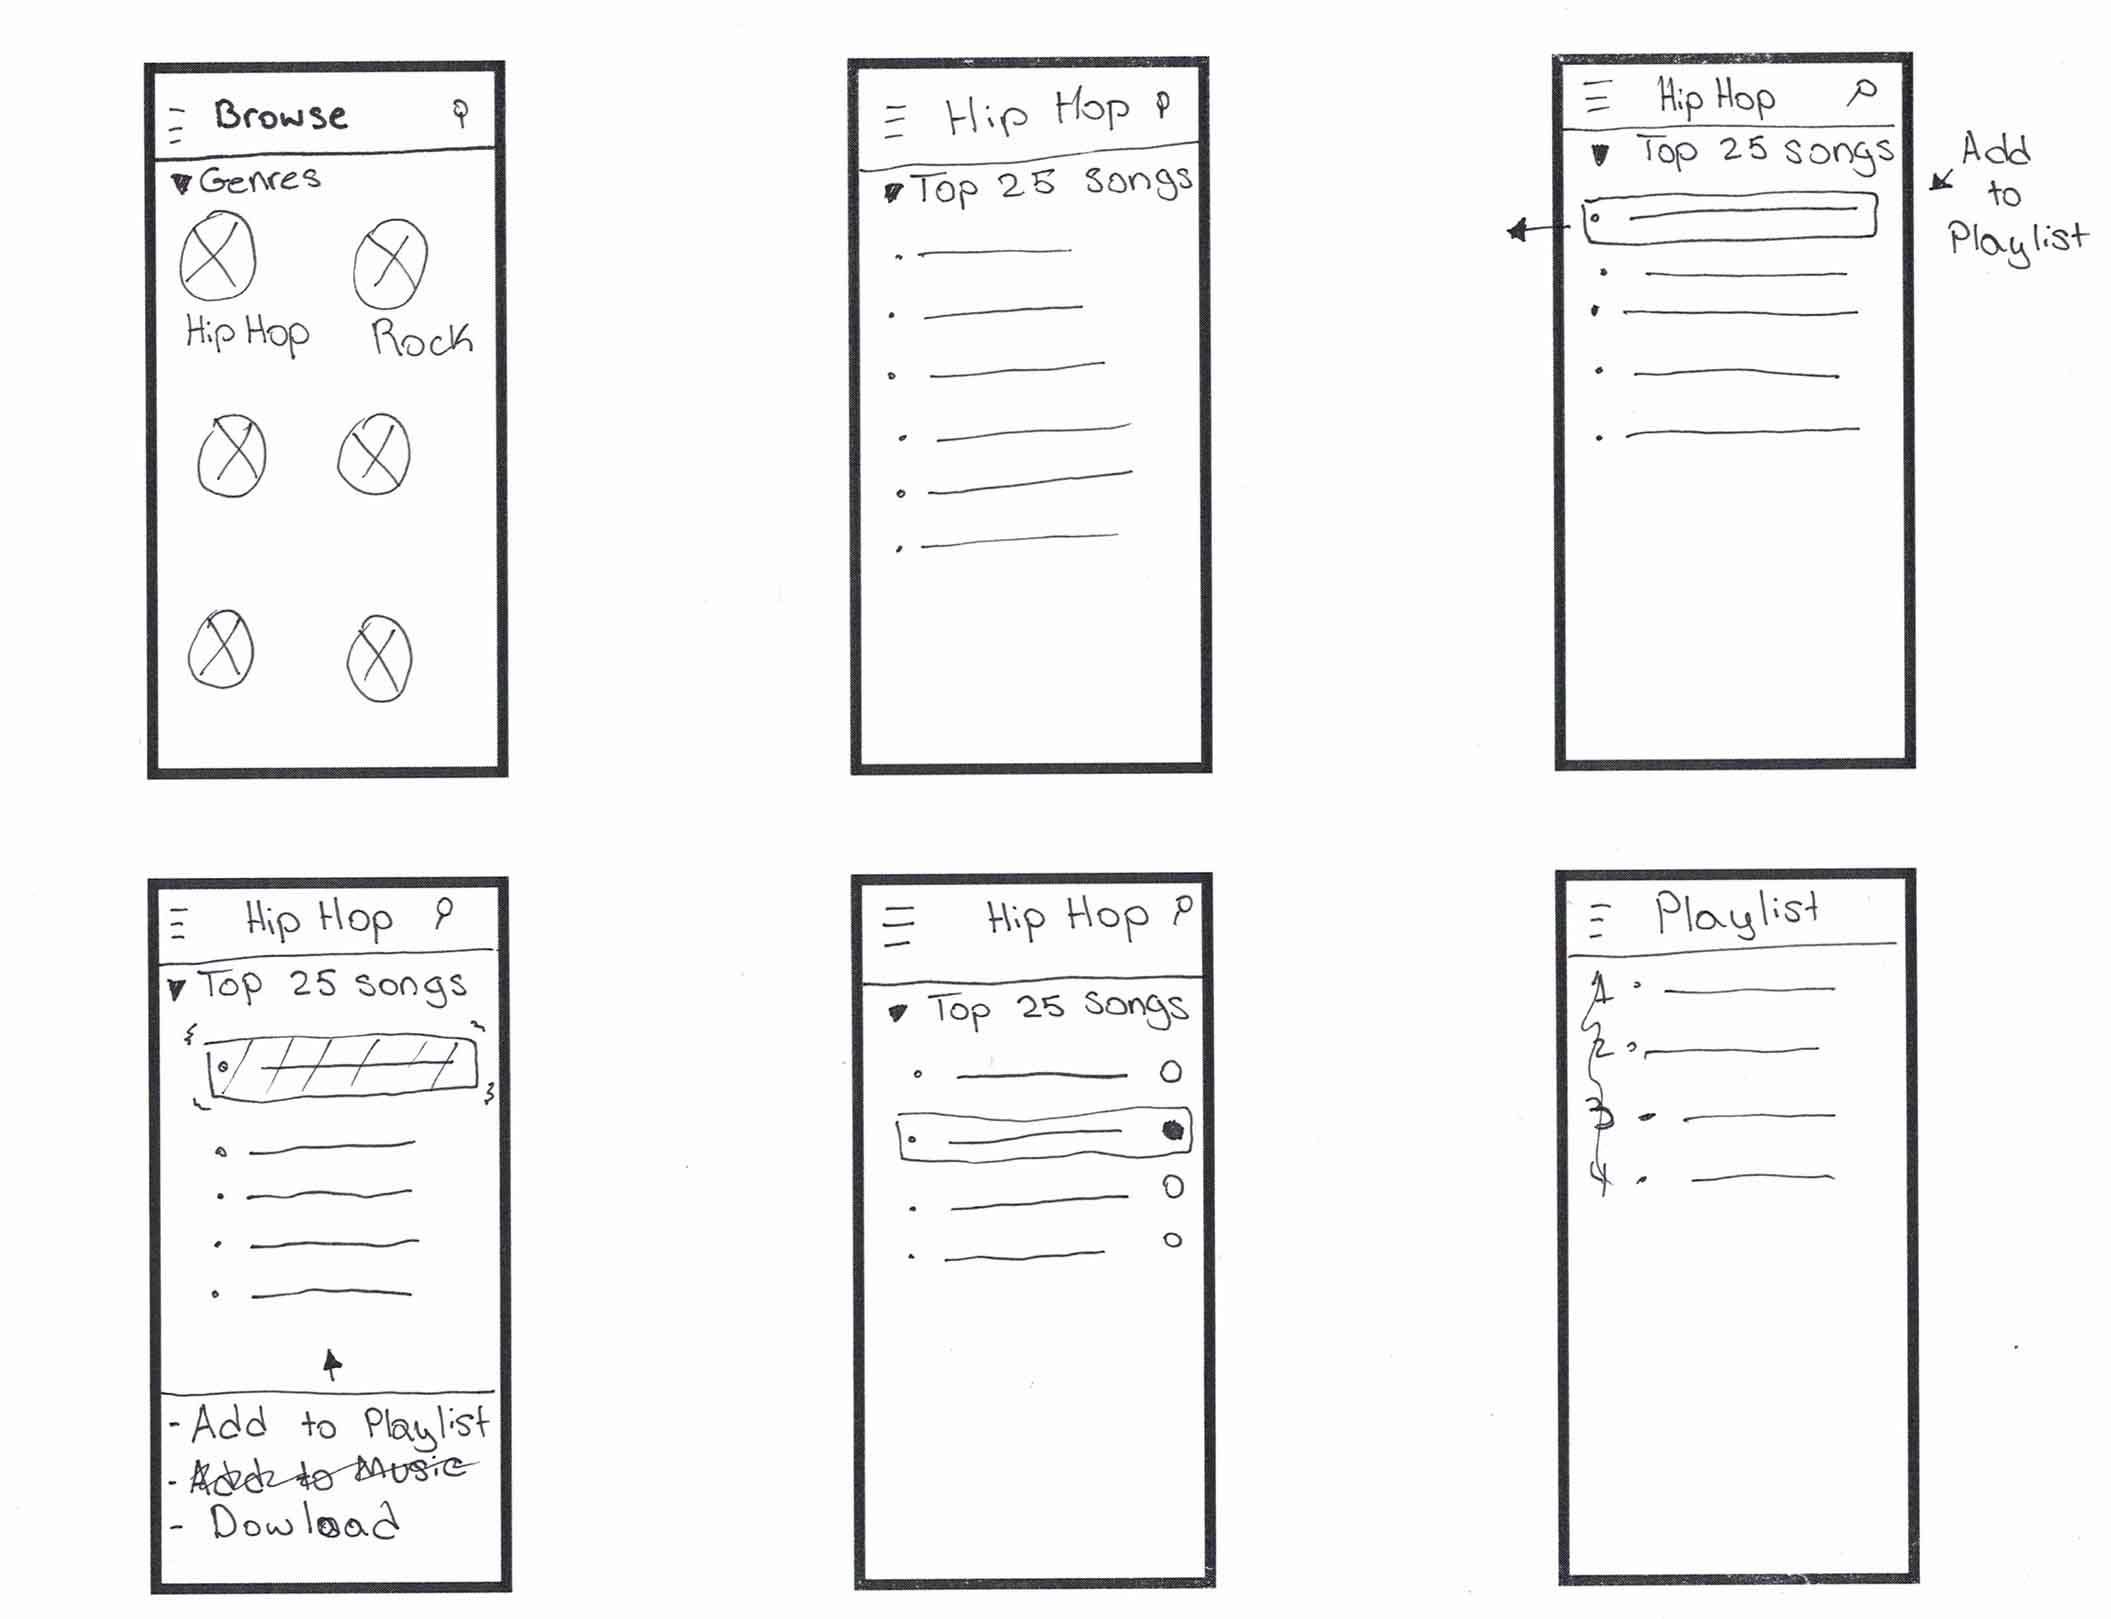 Browse
Genres
Hip Hop
Rock
Hip Hop
Top 25 songs
Hip Hop
Top 25 songs
Add
to
Playlist
Hip Hop
Top 25 songs
- Add to Playlist
- Add to Music
- Dowload
Hip Hop
Top 25 songs
Playlist
1
2
3
4